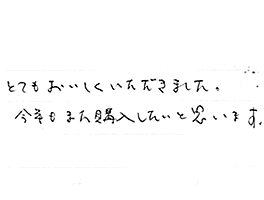 とてもおいしくいただきました。
今年もまた購入したいと思います。